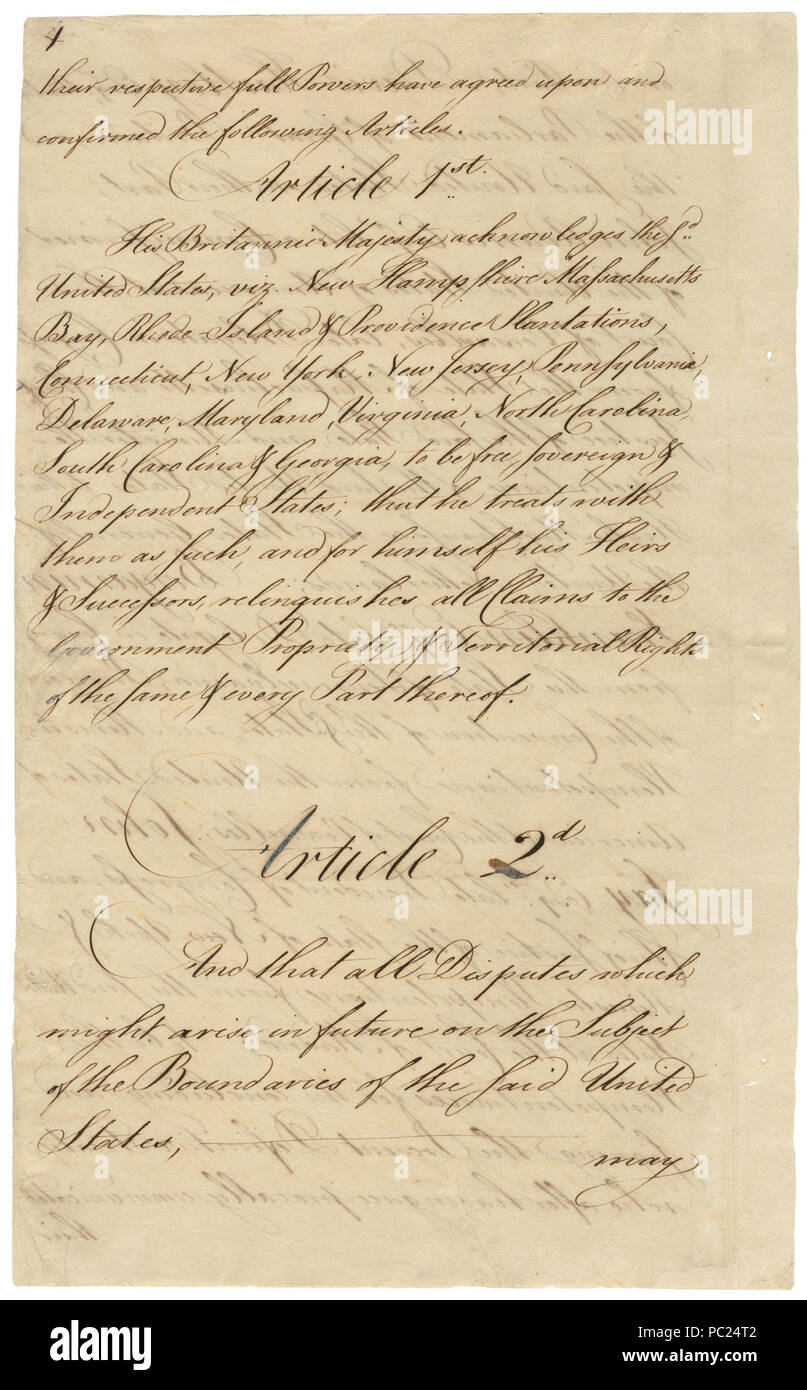 4
their respective full Powers have agreed upon and
confirmed the following Articles.
Article 1st.
His Britannic Majesty acknowledges the sd.
United States, viz. New Hampshire Massachusetts
Bay, Rhode-Island & Providence Plantations,
Connecticut, New York, New Jersey, Pennsylvania,
Delaware, Maryland, Virginia, North Carolina,
South Carolina & Georgia, to be free, sovereign &
Independent States; that he treats with
them as such, and for himself his Heirs
& Successors, relinquishes all Claims to the
Government Propriety & Territorial Rights
of the same & every Part thereof.
Article 2d.
And that all Disputes which
might arise in future on the Subject
of the Boundaries of the said United
States,
may
alamy
alamy
Image ID: PC24T2
www.alamy.com